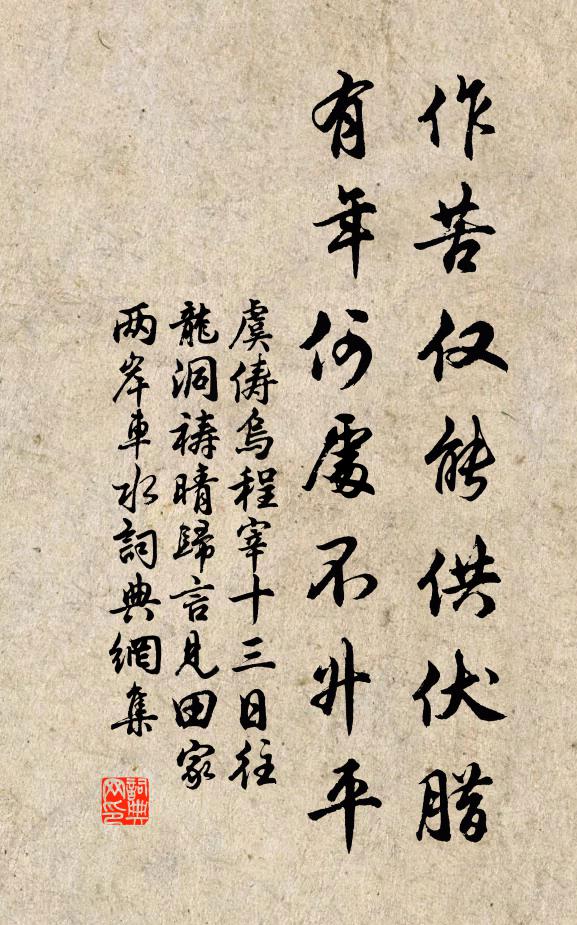 作苦仅能供伏腊
有年何處不升平
虞俦烏程宰十三日往
龍洞祷晴歸言見田家
两岸車水詞典網集
詞典网印